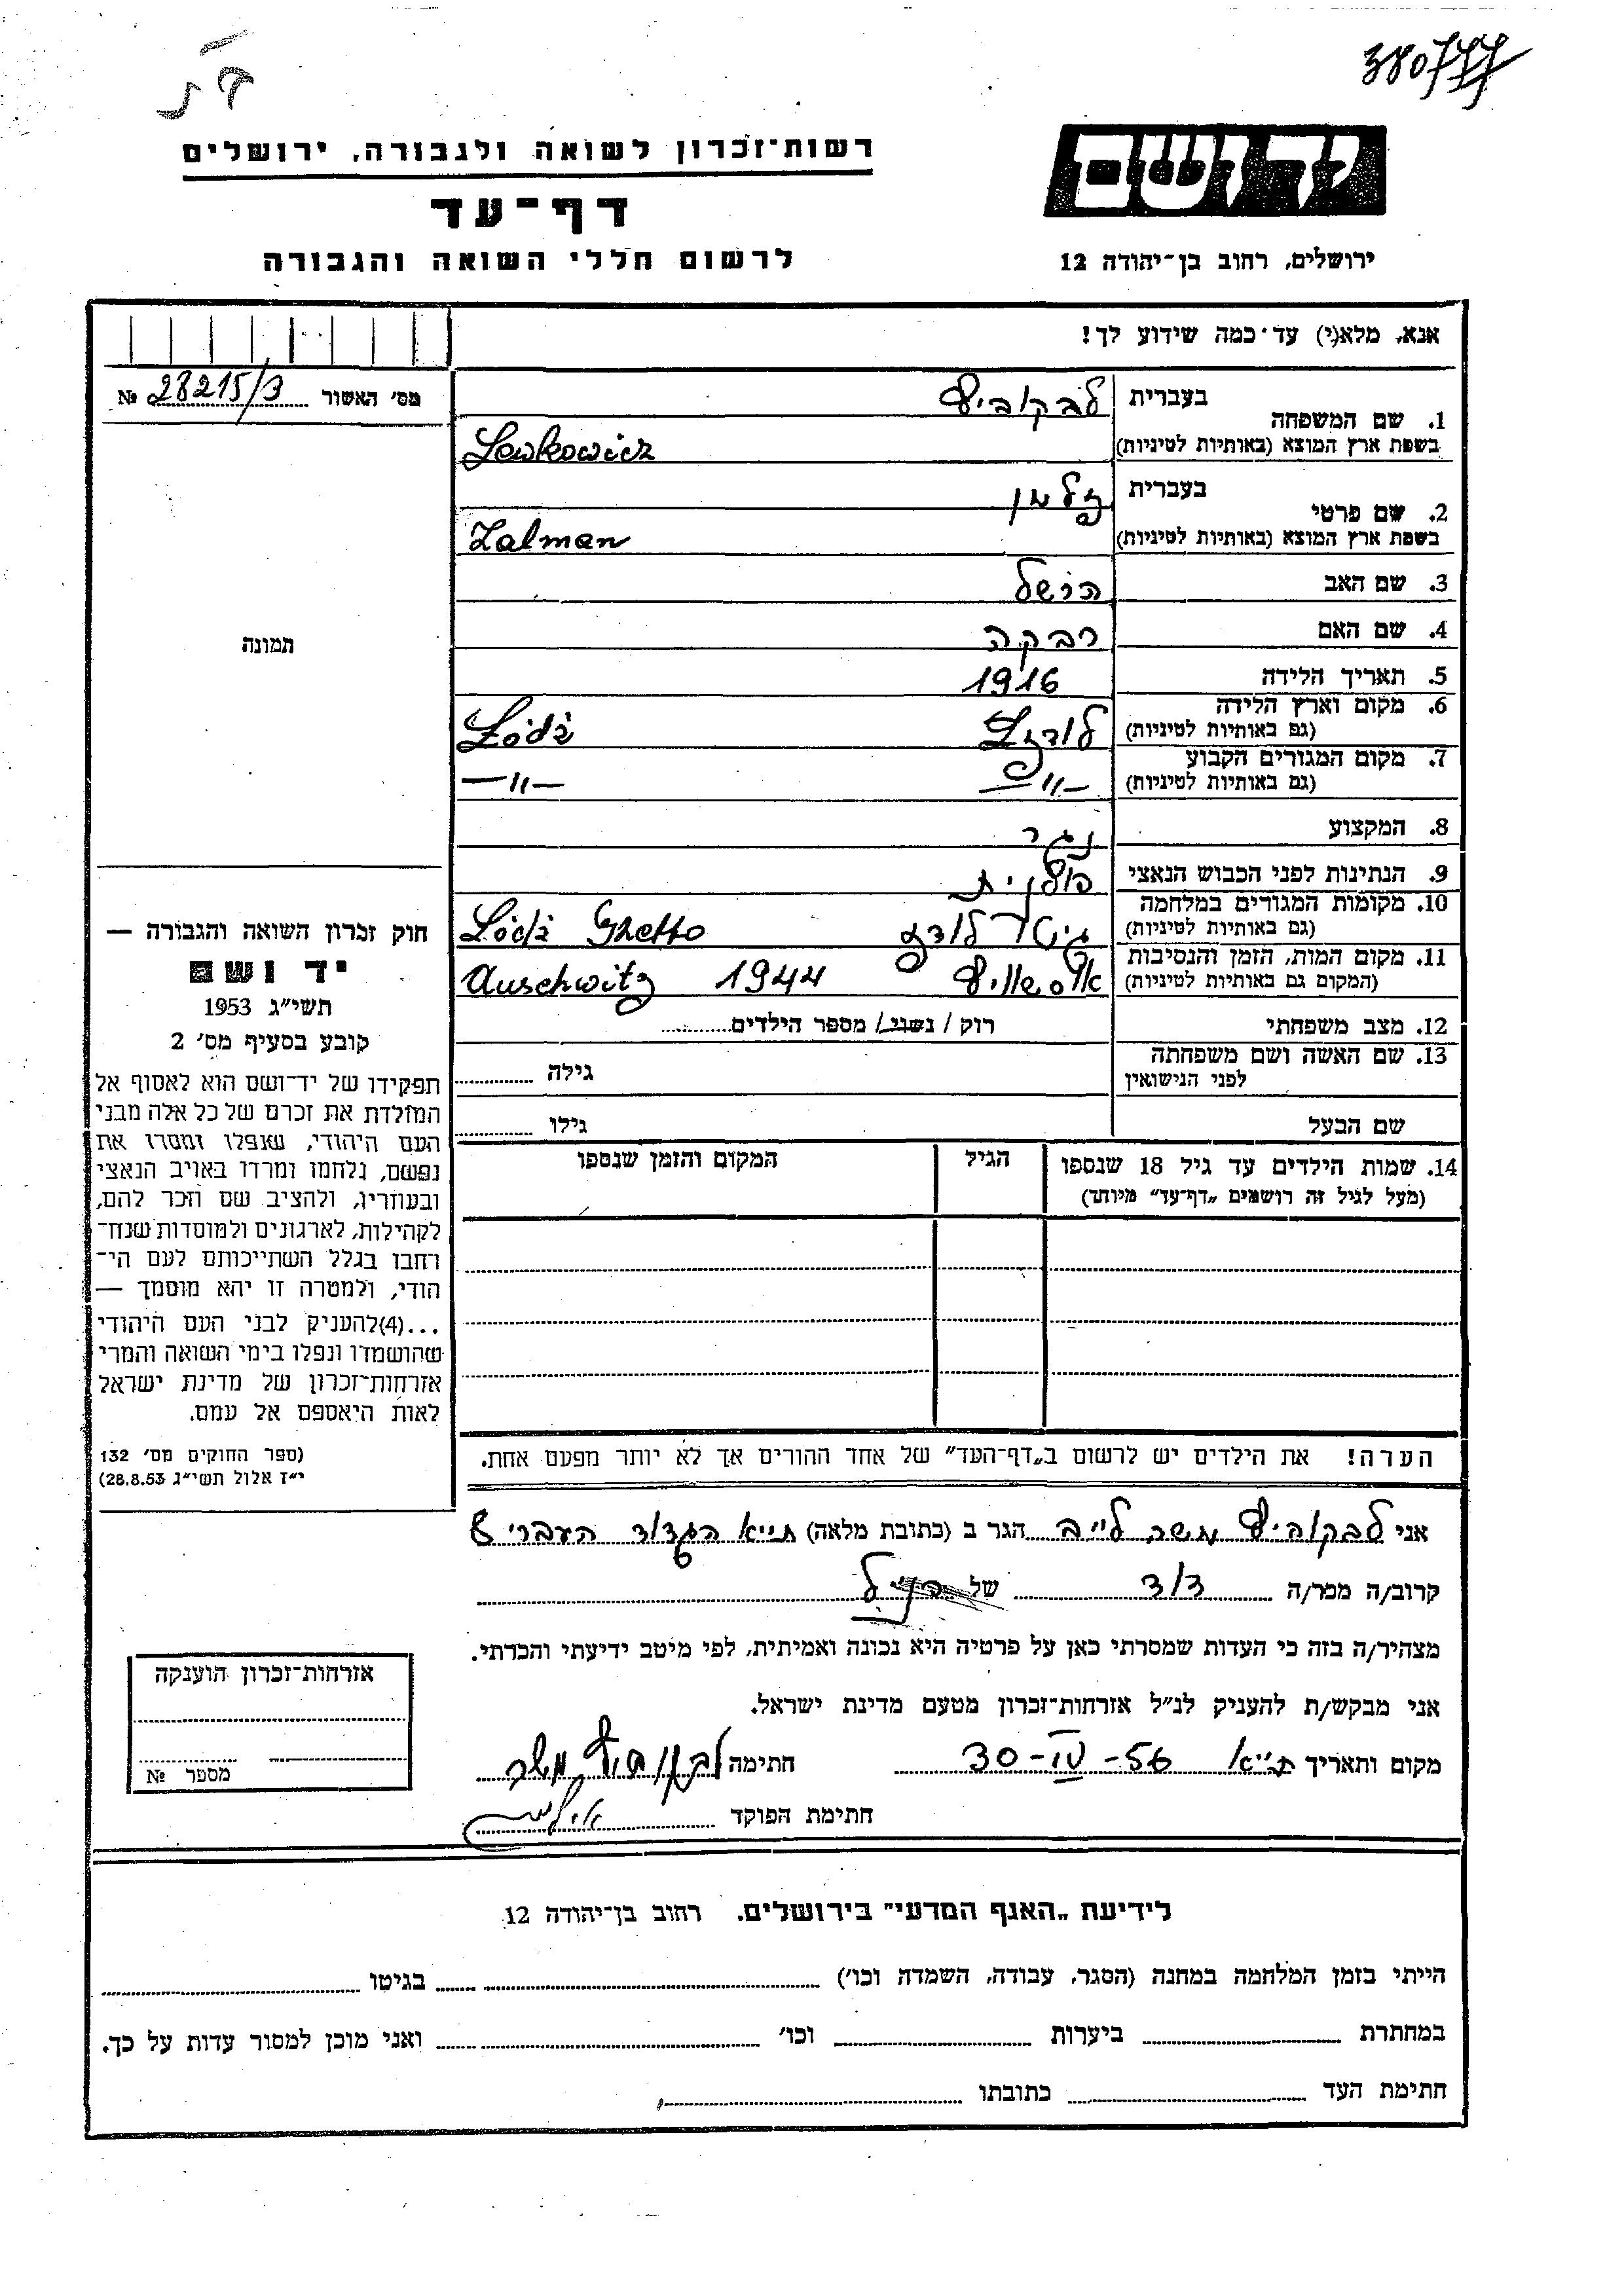 380777
ד ת
רשות־זכרון לשואה ולגבורה, ירושלים
דף־עד
לרשום חללי השואה והגבורה
יד ושם
ירושלים, רחוב בן־יהודה 12
אנא, מלא(י) עד־כמה שידוע לך!
מס׳ האשור 28215/3 №
1. שם המשפחה
בעברית לבקוביץ
בשפת ארץ המוצא (באותיות לטיניות) Lewkowicz
2. שם פרטי
בעברית זלמן
בשפת ארץ המוצא (באותיות לטיניות) Zalman
3. שם האב הרשל
4. שם האם רבקה
5. תאריך הלידה 1916
6. מקום וארץ הלידה
(גם באותיות לטיניות) לודז Łódź
7. מקום המגורים הקבוע
(גם באותיות לטיניות) —"— —"—
8. המקצוע נגר
9. הנתינות לפני הכבוש הנאצי פולנית
10. מקומות המגורים במלחמה
(גם באותיות לטיניות) גיטו לודז Łódź Ghetto
11. מקום המות, הזמן והנסיבות
(המקום גם באותיות לטיניות) אושוויץ 1944 Auschwitz
12. מצב משפחתי רוק / נשוי / מספר הילדים
13. שם האשה ושם משפחתה
לפני הנישואין גילה
שם הבעל גילו
14. שמות הילדים עד גיל 18 שנספו
(מעל לגיל זה רושמים „דף־עד" מיוחד)
הגיל
המקום והזמן שנספו
הערה! את הילדים יש לרשום ב„דף־העד" של אחד ההורים אך לא יותר מפעם אחת.
תמונה
חוק זכרון השואה והגבורה —
יד ושם
תשי״ג 1953
קובע בסעיף מס׳ 2
תפקידו של יד־ושם הוא לאסוף אל
המולדת את זכרם של כל אלה מבני
העם היהודי, שנפלו ומסרו את
נפשם, נלחמו ומרדו באויב הנאצי
ובעוזריו, ולהציב שם וזכר להם,
לקהילות, לארגונים ולמוסדות שנח־
רחבו בגלל השתייכותם לעם הי־
הודי, ולמטרה זו יהא מוסמך —
...(4)להעניק לבני העם היהודי
שהושמדו ונפלו בימי השואה והמרי
אזרחות־זכרון של מדינת ישראל
לאות היאספם אל עמם.
(ספר החוקים מס׳ 132
י״ז אלול תשי״ג 28.8.53)
אני לבקוביץ אשר לייב הגר ב (כתובת מלאה) ת״א הגדוד העברי 8
קרוב/ה מכר/ה דוד של הנ״ל
מצהיר/ה בזה כי העדות שמסרתי כאן על פרטיה היא נכונה ואמיתית, לפי מיטב ידיעתי והכרתי.
אני מבקש/ת להעניק לנ״ל אזרחות־זכרון מטעם מדינת ישראל.
מקום ותאריך ת״א 30-IV-56 חתימה לבקוביץ אשר
חתימת הפוקד
אזרחות־זכרון הוענקה
מספר №
לידיעת „האגף המדעי" בירושלים. רחוב בן־יהודה 12
הייתי בזמן המלחמה במחנה (הסגר, עבודה, השמדה וכו׳) בגיטו
במחתרת ביערות וכו׳ ואני מוכן למסור עדות על כך.
חתימת העד כתובתו